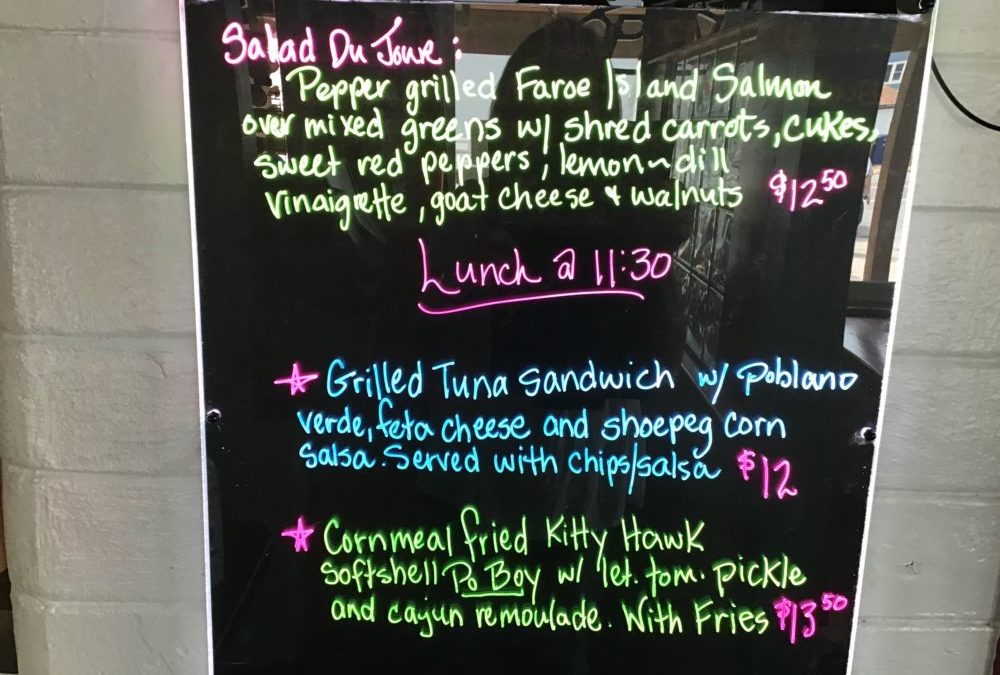 Salad Du Jour:
Pepper grilled Faroe Island Salmon
over mixed greens w/ shred carrots, cukes,
sweet red peppers, lemon~dill
vinaigrette, goat cheese & walnuts $12.50
Lunch @ 11:30
☆ Grilled Tuna Sandwich w/ Poblano
verde, feta cheese and shoepeg corn
Salsa. Served with chips/salsa $12
☆ Cornmeal fried Kitty Hawk
Softshell Po Boy w/ let. tom. pickle
and cajun remoulade. With Fries $13.50